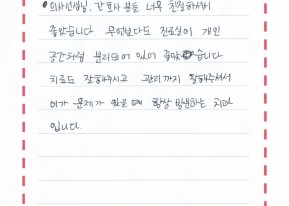 의사선생님, 간호사 분들 너무 친절하셔서
좋았습니다. 무엇보다도 진료실이 개인
공간처럼 분리되어 있어 좋았습니다.
치료도 잘해주시고 관리까지 잘해주셔서
이가 문제가 있을 때 항상 방문하는 치과
입니다.